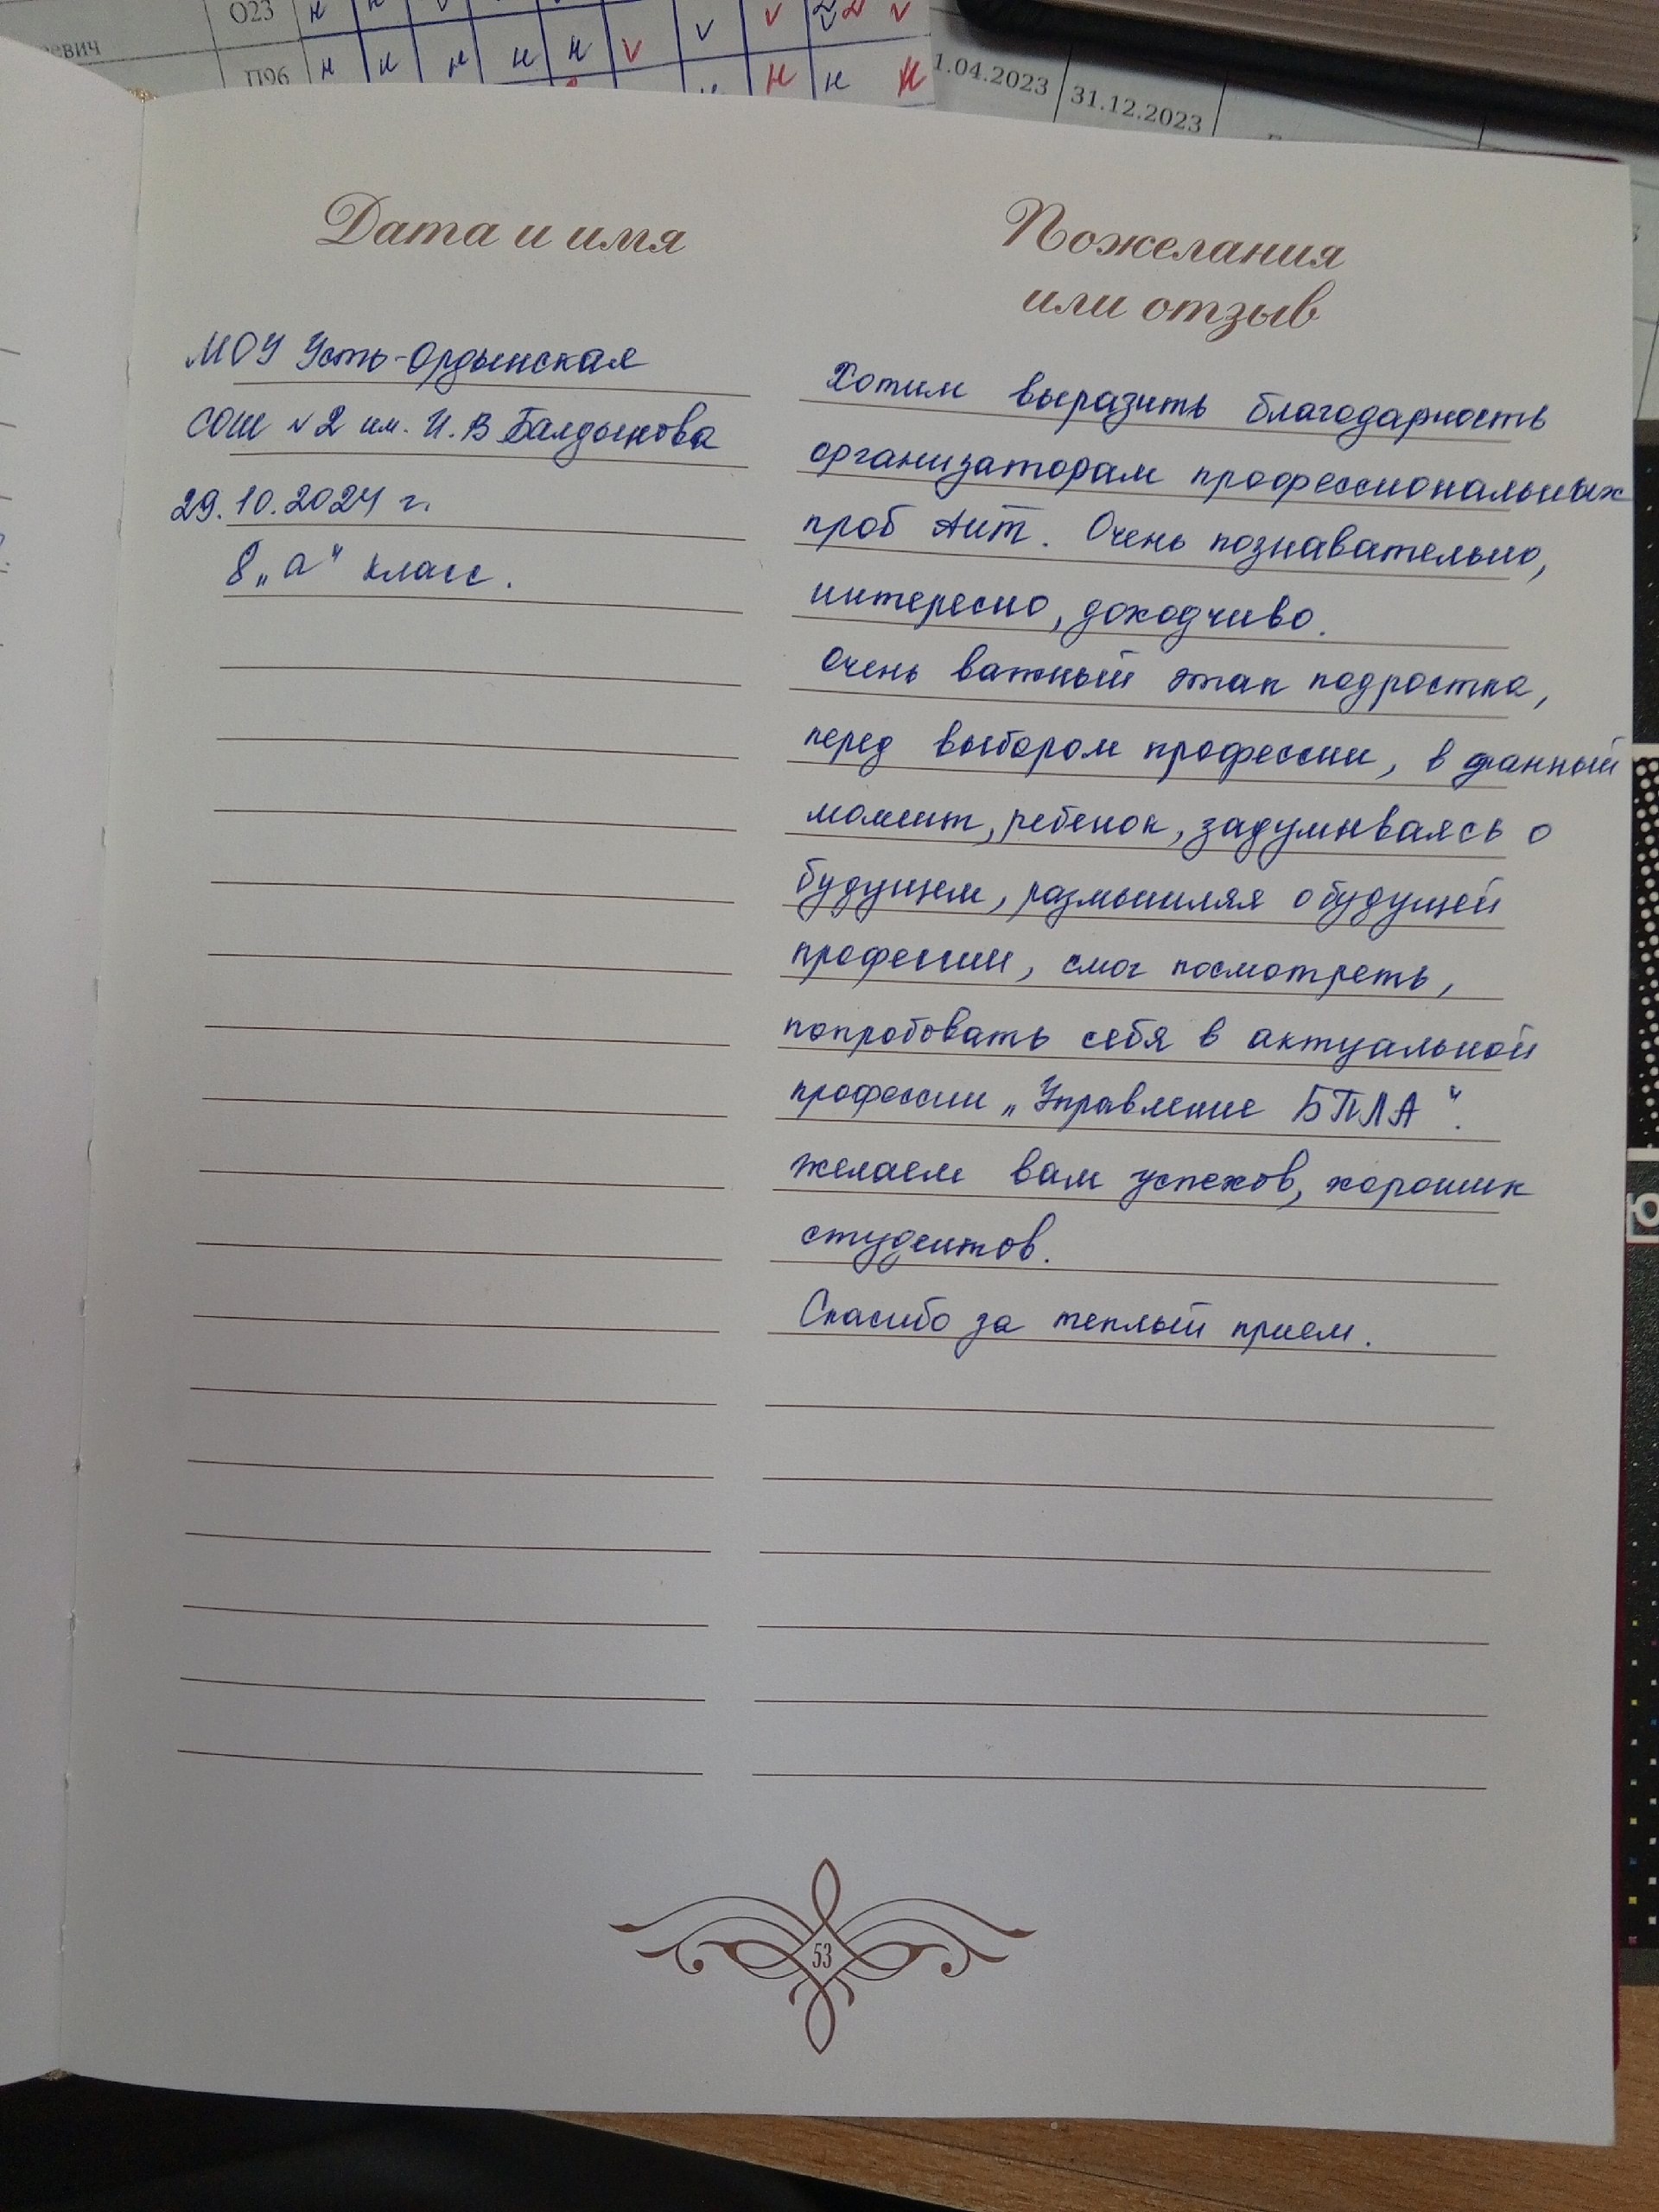 евич
О23
П96
н н н н н v v v
н н н
1.04.2023
31.12.2023
Дата и имя
МОУ Усть-Ордынская
СОШ №2 им. И.В Балдынова
29.10.2024 г.
8 „а“ класс.
Пожелания
или отзыв
Хотим выразить благодарность
организаторам профессиональных
проб АИТ. Очень познавательно,
интересно, доходчиво.
Очень важный этап подростка,
перед выбором профессии, в данный
момент, ребенок, задумываясь о
будущем, размышляя о будущей
профессии, смог посмотреть,
попробовать себя в актуальной
профессии „Управление БПЛА“.
Желаем вам успехов, хороших
студентов.
Спасибо за теплый прием.
53
ю